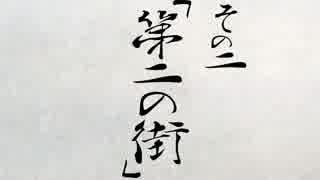 その二
「第二の街」